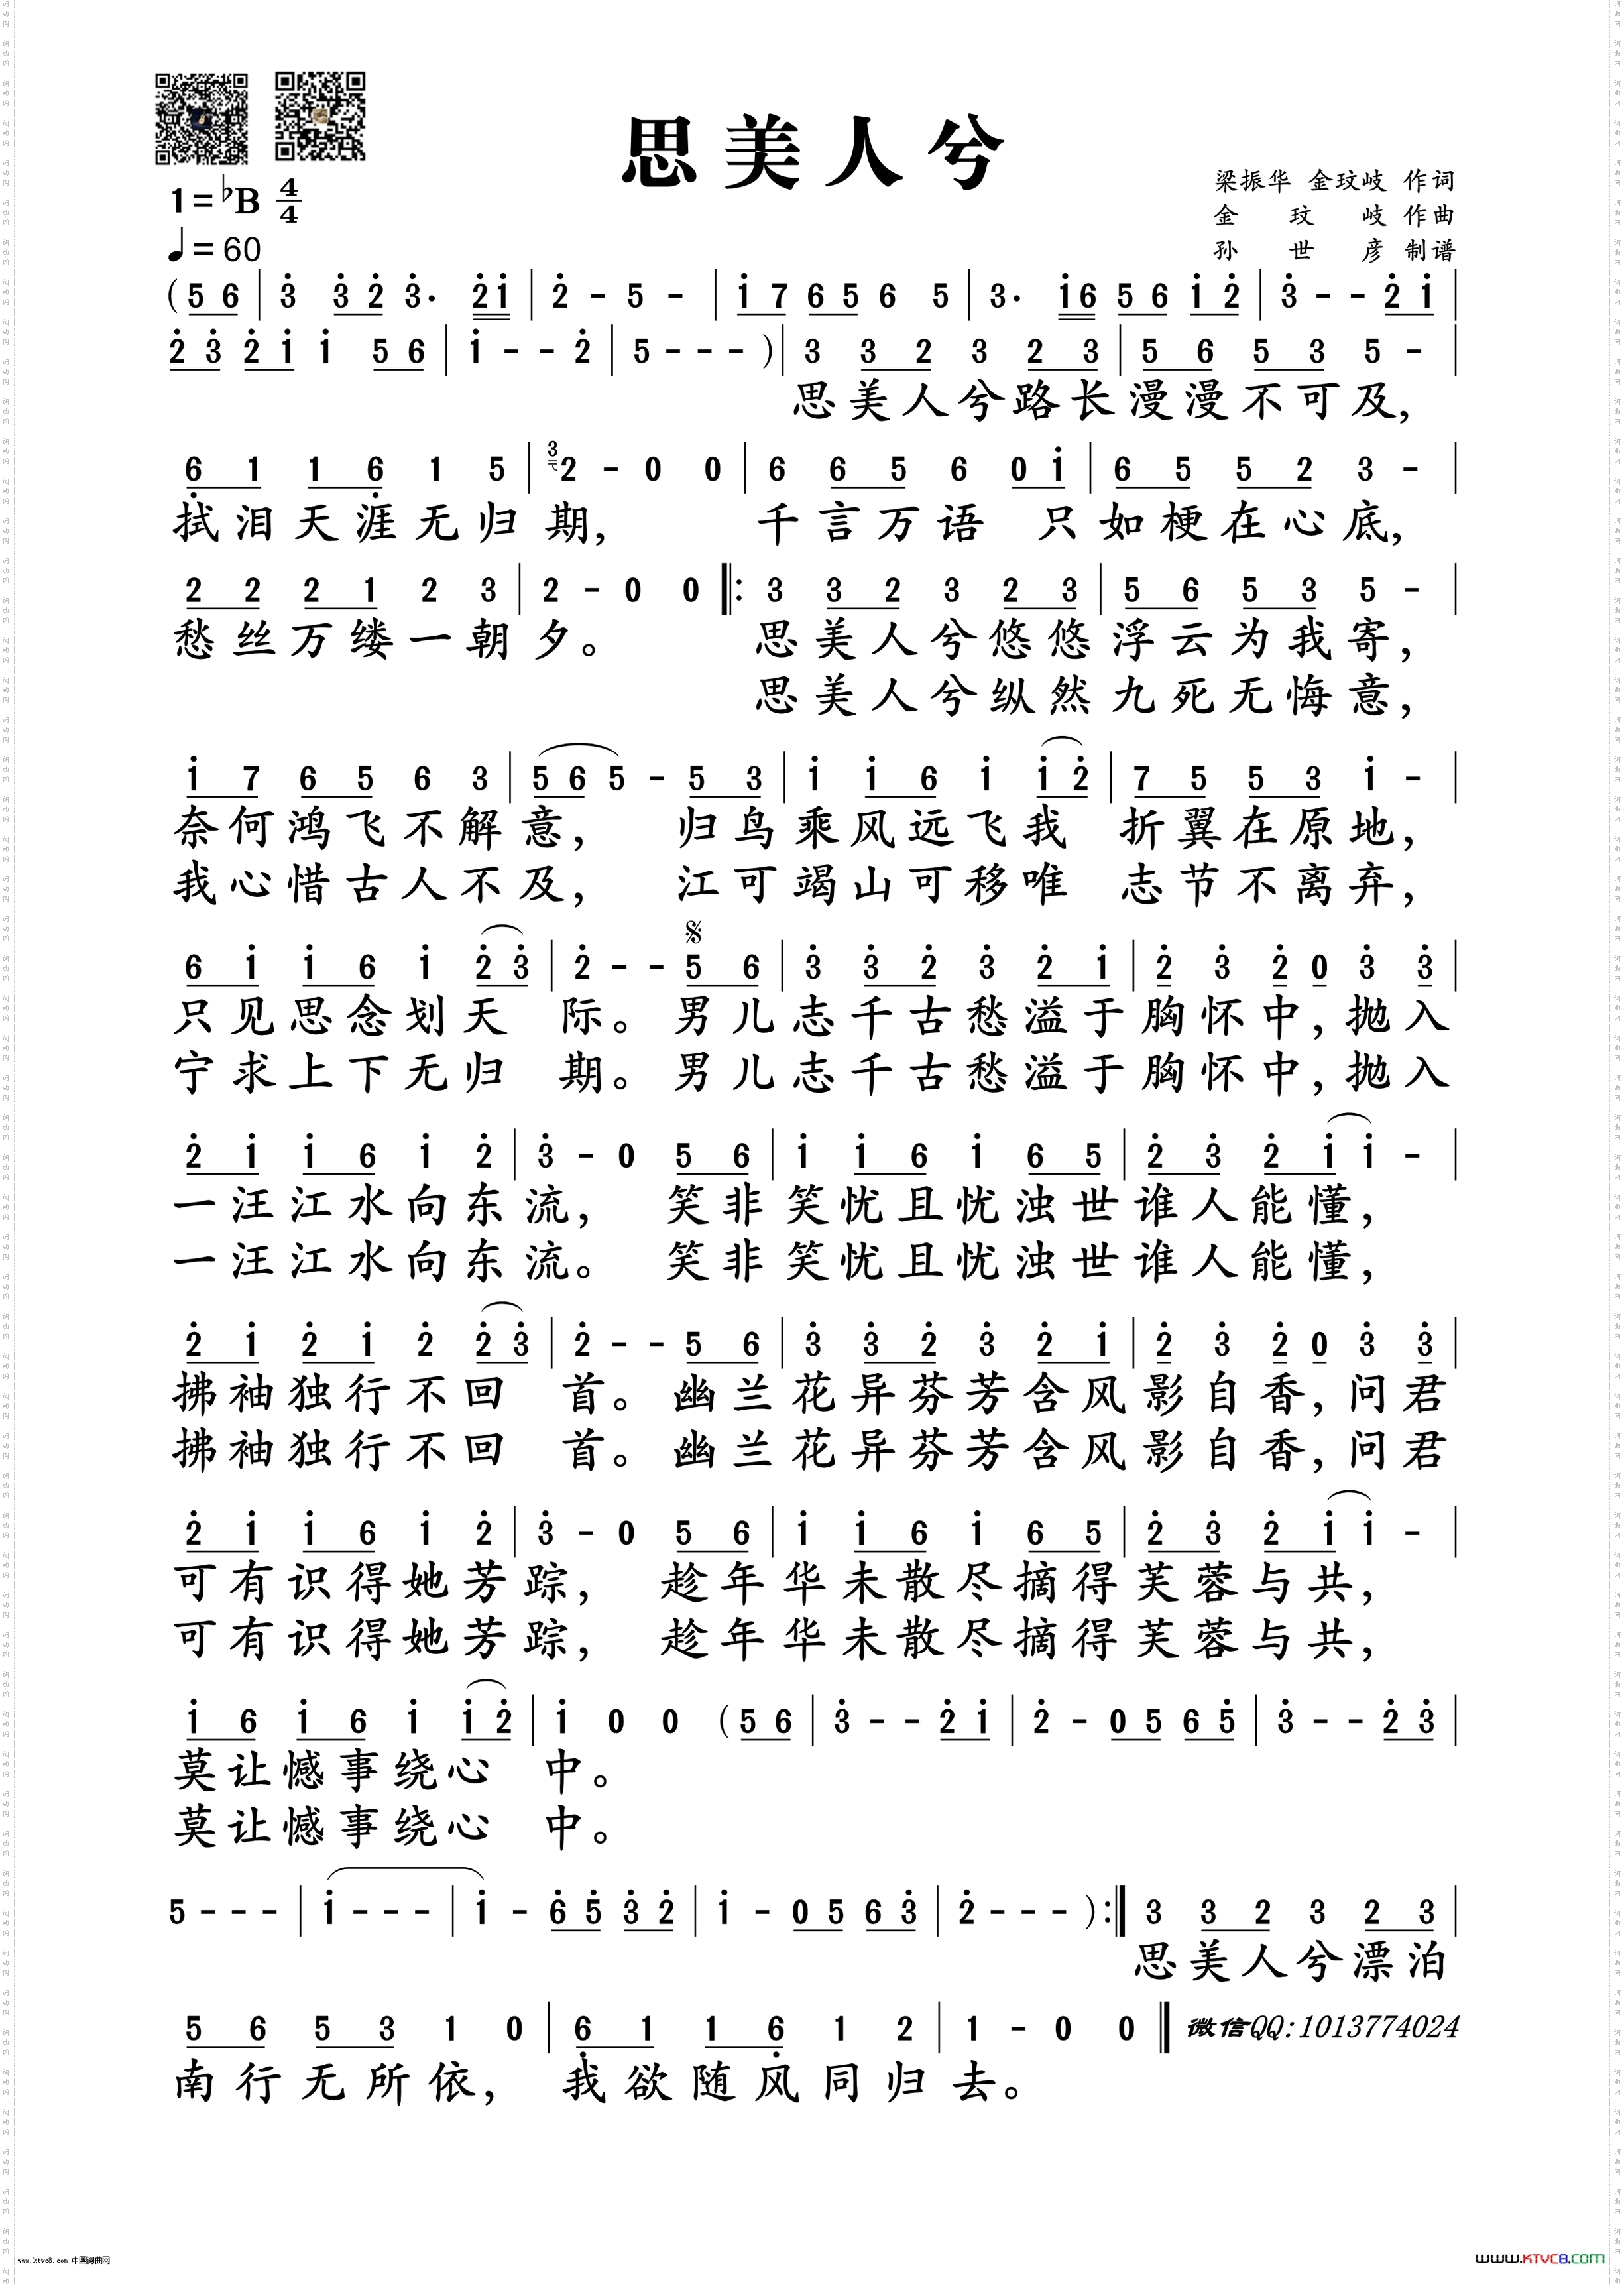 思美人兮
梁振华 金玟岐 作词
1=♭B 4/4
金 玟 岐 作曲
♩=60
孙 世 彦 制谱
(5 6 | 3̇ 3̇ 2̇ 3̇· 2̇ 1̇ | 2̇ - 5 - | 1̇ 7 6 5 6 5 | 3· 1̇ 6 5 6 1̇ 2̇ | 3̇ - - 2̇ 1̇ |
2̇ 3̇ 2̇ 1̇ 1̇ 5 6 | 1̇ - - 2̇ | 5 - - - ) | 3 3 2 3 2 3 | 5 6 5 3 5 - |
思美人兮路长漫漫不可及,
6̣ 1 1 6̣ 1 5 | 3 2 - 0 0 | 6 6 5 6 0 1̇ | 6 5 5 2 3 - |
拭泪天涯无归期, 千言万语 只如梗在心底,
2 2 2 1 2 3 | 2 - 0 0 ‖: 3 3 2 3 2 3 | 5 6 5 3 5 - |
愁丝万缕一朝夕。 思美人兮悠悠浮云为我寄,
思美人兮纵然九死无悔意,
1̇ 7 6 5 6 3 | 5 6 5 - 5 3 | 1̇ 1̇ 6 1̇ 1̇ 2̇ | 7 5 5 3 1̇ - |
奈何鸿飞不解意, 归鸟乘风远飞我 折翼在原地,
我心惜古人不及, 江可竭山可移唯 志节不离弃,
𝄋
6 1̇ 1̇ 6 1̇ 2̇ 3̇ | 2̇ - - 5 6 | 3̇ 3̇ 2̇ 3̇ 2̇ 1̇ | 2̇ 3̇ 2̇ 0 3̇ 3̇ |
只见思念划天 际。男儿志千古愁溢于胸怀中,抛入
宁求上下无归 期。男儿志千古愁溢于胸怀中,抛入
2̇ 1̇ 1̇ 6 1̇ 2̇ | 3̇ - 0 5 6 | 1̇ 1̇ 6 1̇ 6 5 | 2̇ 3̇ 2̇ 1̇ 1̇ - |
一汪江水向东流, 笑非笑忧且忧浊世谁人能懂,
一汪江水向东流。 笑非笑忧且忧浊世谁人能懂,
2̇ 1̇ 2̇ 1̇ 2̇ 2̇ 3̇ | 2̇ - - 5 6 | 3̇ 3̇ 2̇ 3̇ 2̇ 1̇ | 2̇ 3̇ 2̇ 0 3̇ 3̇ |
拂袖独行不回 首。幽兰花异芬芳含风影自香,问君
拂袖独行不回 首。幽兰花异芬芳含风影自香,问君
2̇ 1̇ 1̇ 6 1̇ 2̇ | 3̇ - 0 5 6 | 1̇ 1̇ 6 1̇ 6 5 | 2̇ 3̇ 2̇ 1̇ 1̇ - |
可有识得她芳踪, 趁年华未散尽摘得芙蓉与共,
可有识得她芳踪, 趁年华未散尽摘得芙蓉与共,
1̇ 6 1̇ 6 1̇ 1̇ 2̇ | 1̇ 0 0 (5 6 | 3̇ - - 2̇ 1̇ | 2̇ - 0 5 6 5̇ | 3̇ - - 2̇ 3̇ |
莫让憾事绕心 中。
莫让憾事绕心 中。
5 - - - | 1̇ - - - | 1̇ - 6̇ 5̇ 3̇ 2̇ | 1̇ - 0 5 6 3̇ | 2̇ - - - ) :‖ 3 3 2 3 2 3 |
思美人兮漂泊
5 6 5 3 1 0 | 6̣ 1 1 6̣ 1 2 | 1 - 0 0 ‖ 微信QQ:1013774024
南行无所依, 我欲随风同归去。
www.ktvc8.com 中国词曲网
www.KTVC8.com